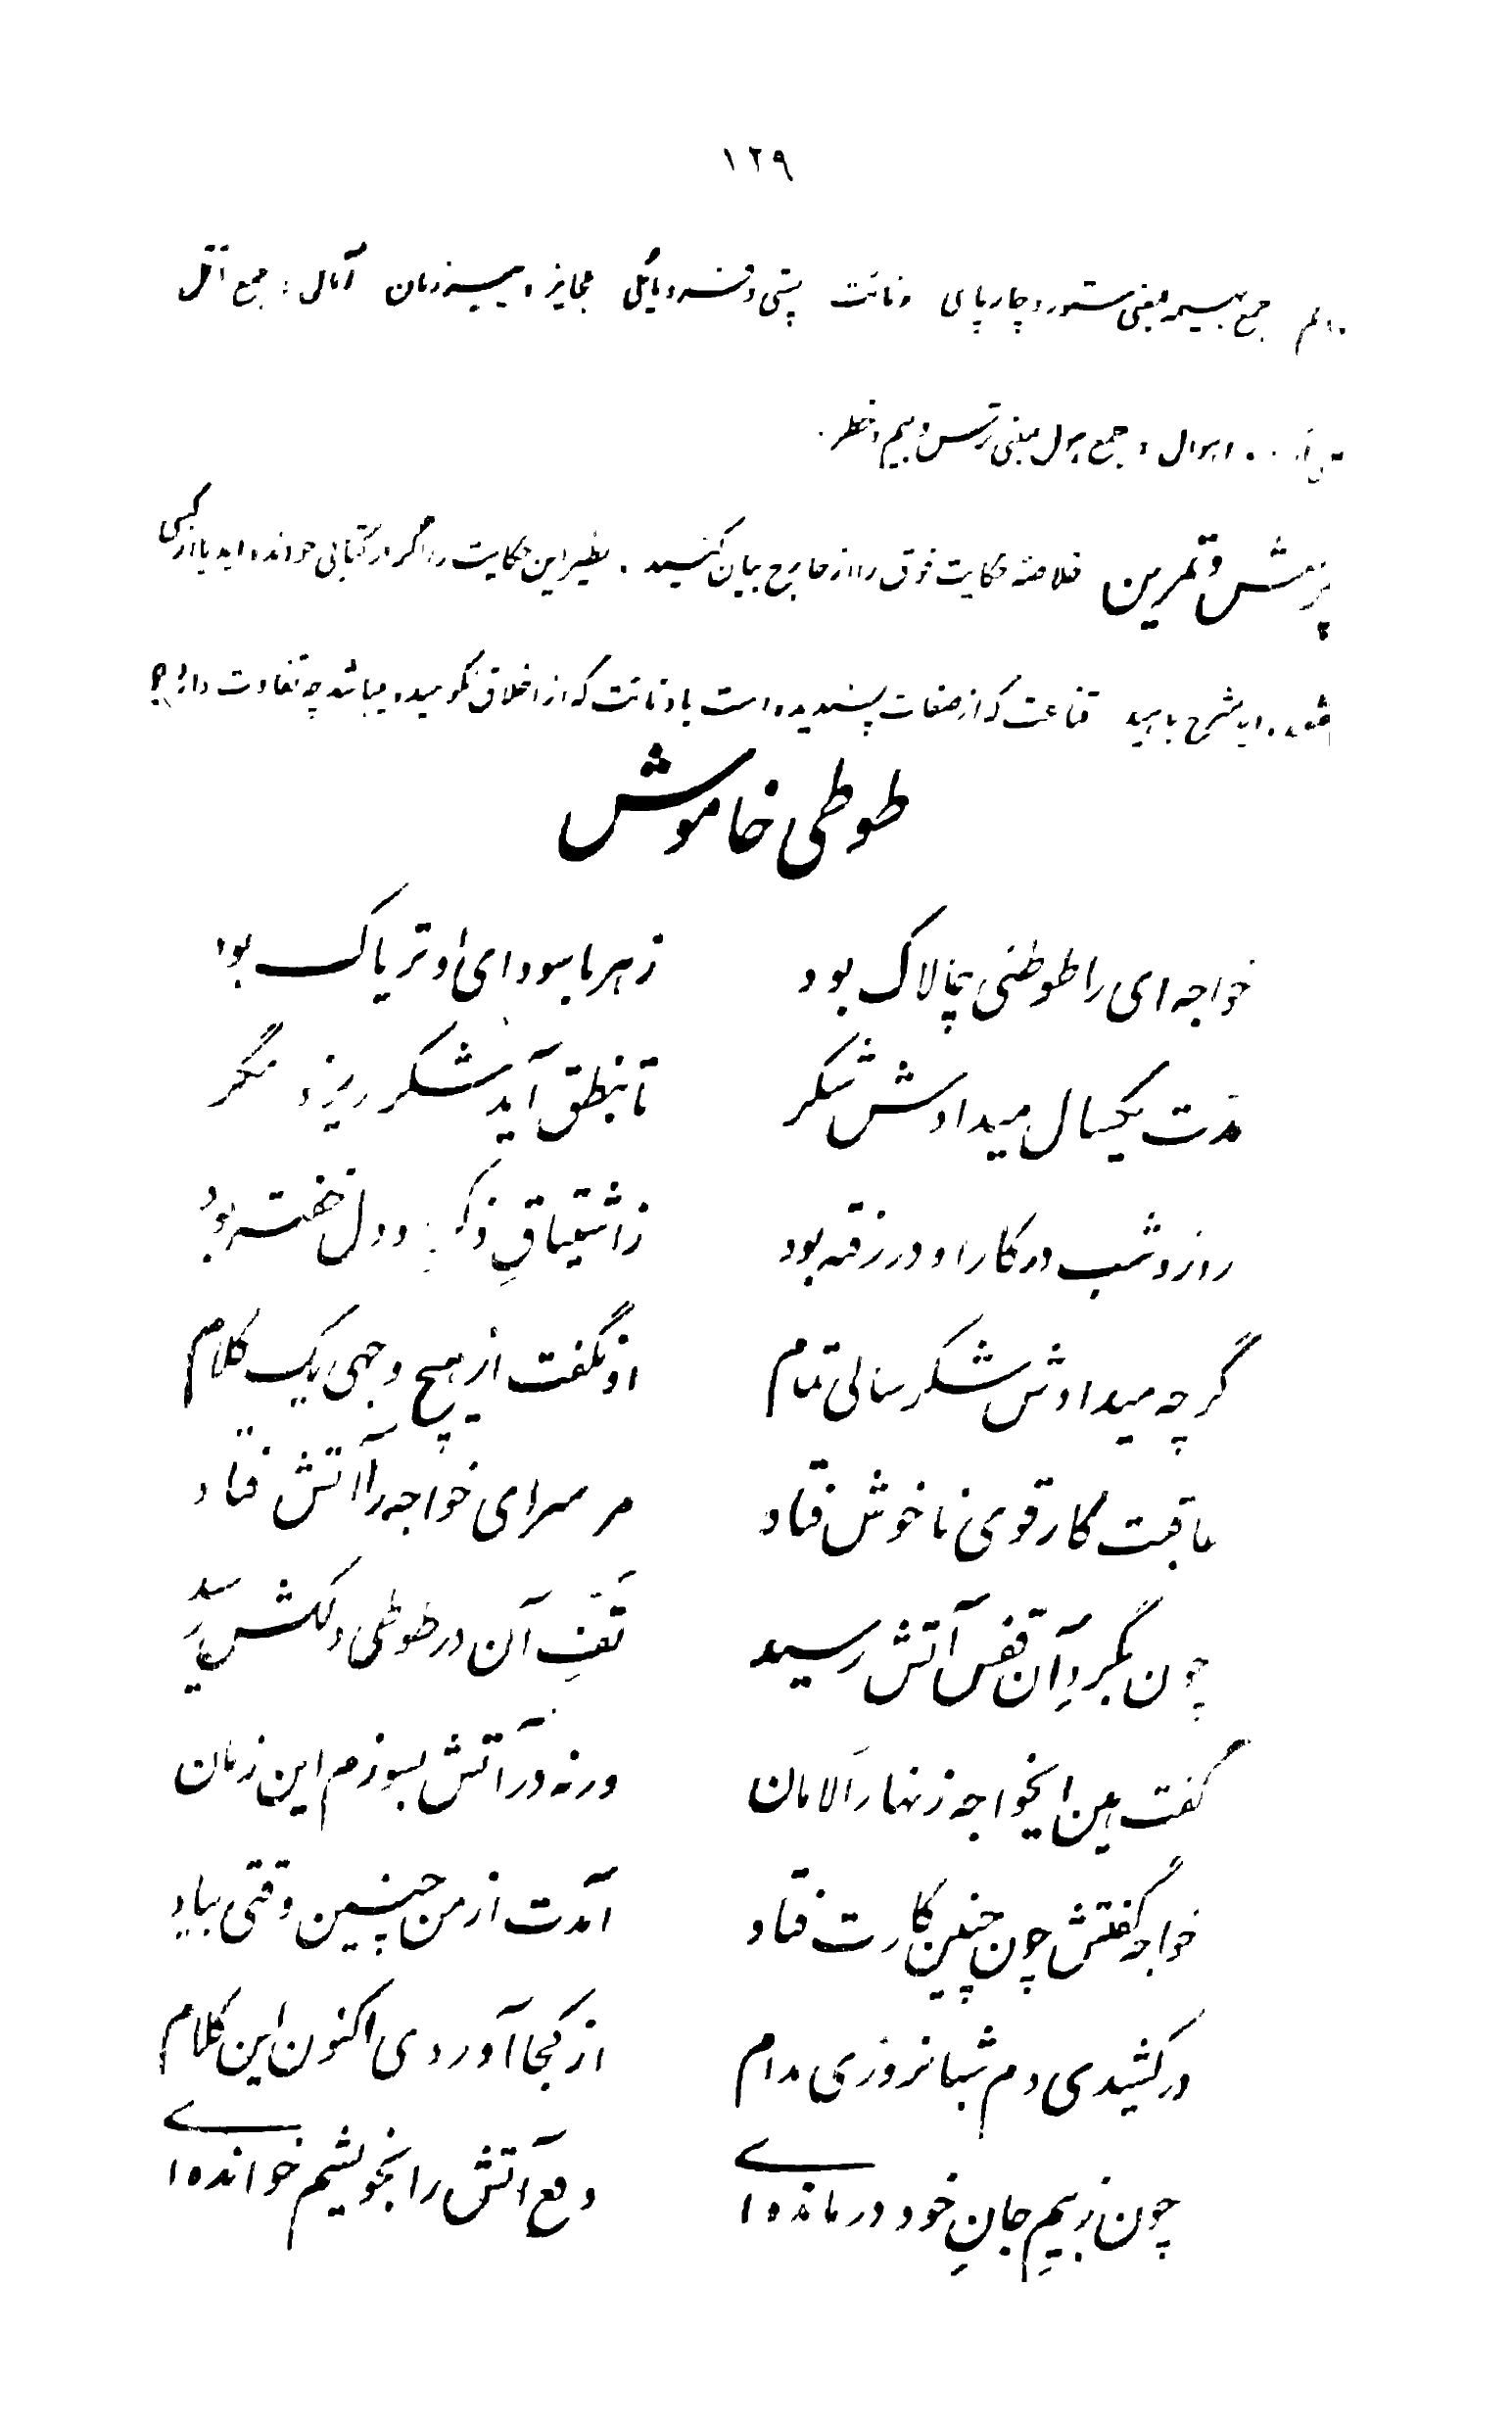 ۱۲۹
جمع بهیمه بمعنی ستور و چارپای دنائت پستی و فرومایگی عجایز : پیرزنان آمال : جمع امل
اهوال : جمع هول بمعنی ترس و بیم و خطر .
پرسش و تمرین خلاصه حکایت فوق را از خارج بیان کنید . نظیر این حکایت را اگر در کتابی خوانده‌اید یا از کسی
شنیده‌اید شرح بدهید قناعت که از صفات پسندیده است با دنائت که از اخلاق نکوهیده میباشد چه تفاوت دارد ؟
طوطی خاموش
خواجه‌ای را طوطئی چالاک بود زهر با سودای او تریاک بود
مدّت یکسال میدادش شکر تا بنطق آید شکر ریزد مگر
روز و شب در کار او در رفته بود ز اشتیاقِ ذکر او دل خفته بود
گرچه میدادش شکر سالی تمام او نگفت از هیچ وجهی یک کلام
عاقبت کار قوی ناخوش فتاد مر سرای خواجه را آتش فتاد
چون بگردِ آن قفس آتش رسید تَفِّ آن در طوطی دلکش رسید
گفت هین ایخواجه زنهار اَلامان ورنه در آتش بسوزم این زمان
خواجه گفتش چون چنین کارت فتاد آمدت از من چنین وقتی بیاد
درکشیدی دم شبانروزی مدام از کجا آوردی اکنون این کلام
چون ز بیمِ جانِ خود درمانده‌ای دفع آتش را بخویشم خوانده‌ای